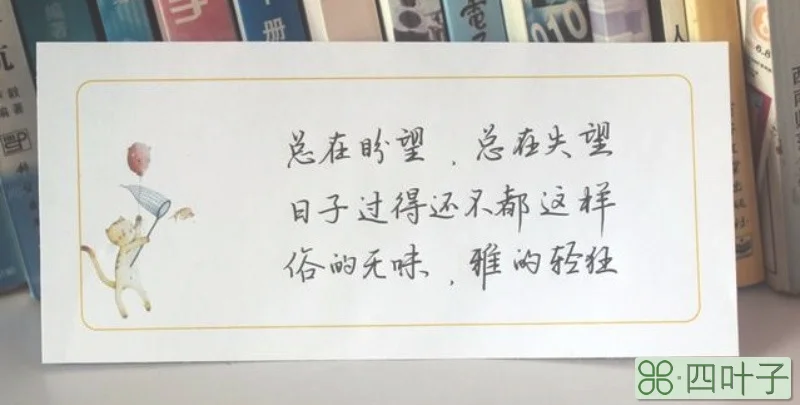 总在盼望，总在失望
日子过得还不都这样
俗的无味，雅的轻狂
010
四叶子